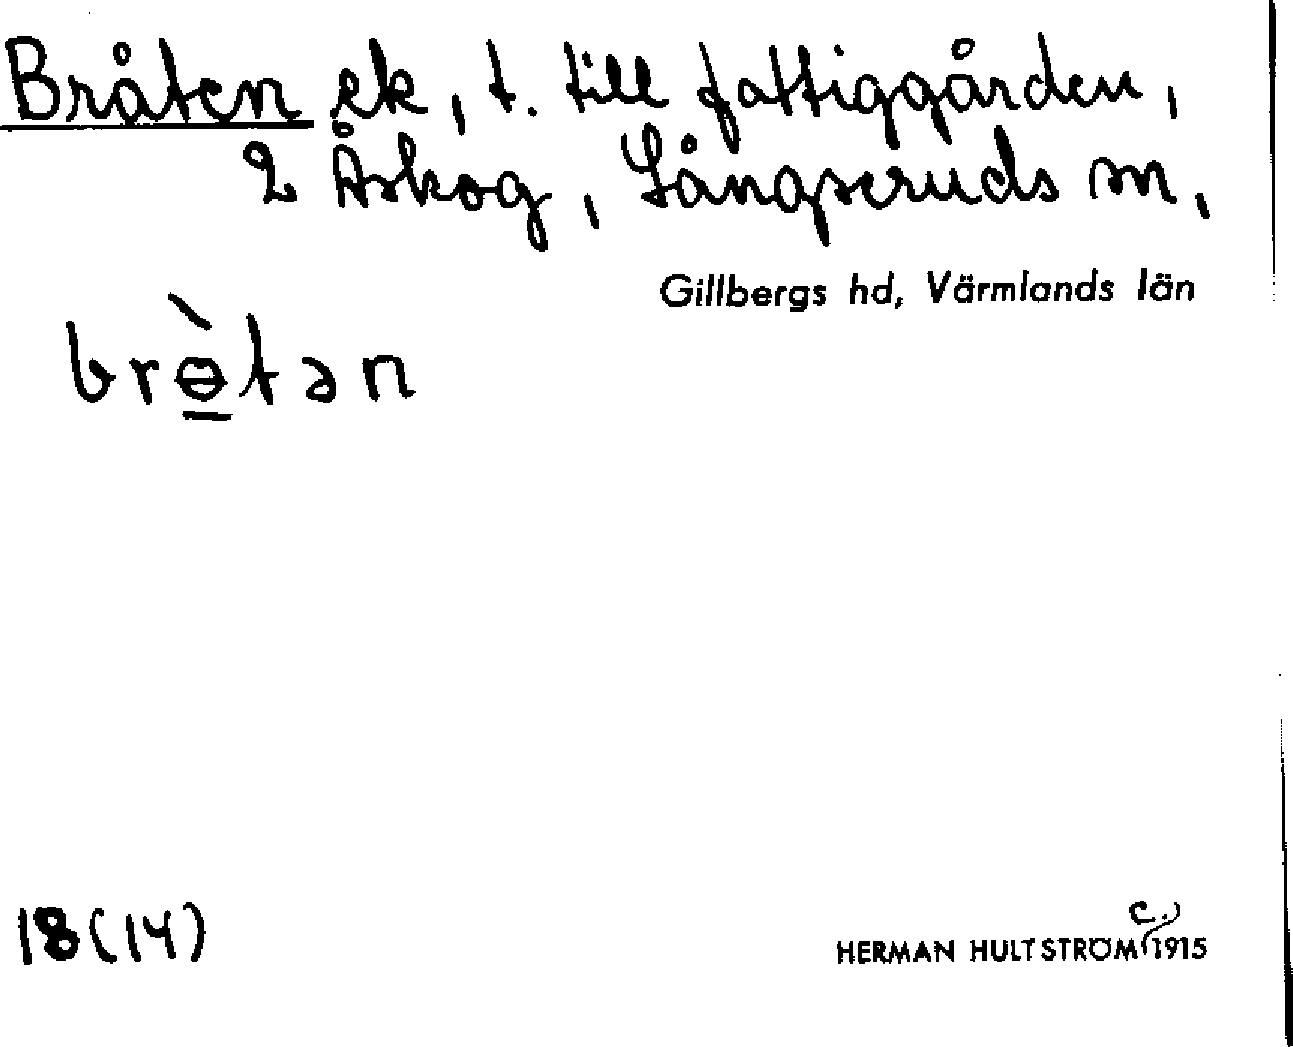 Bråten ek, t. till fattiggården,
2 Åskog, Långseruds sn,
Gillbergs hd, Värmlands län
brɵ̠̀tən
18(14)
HERMAN HULTSTRÖM (c.) 1915